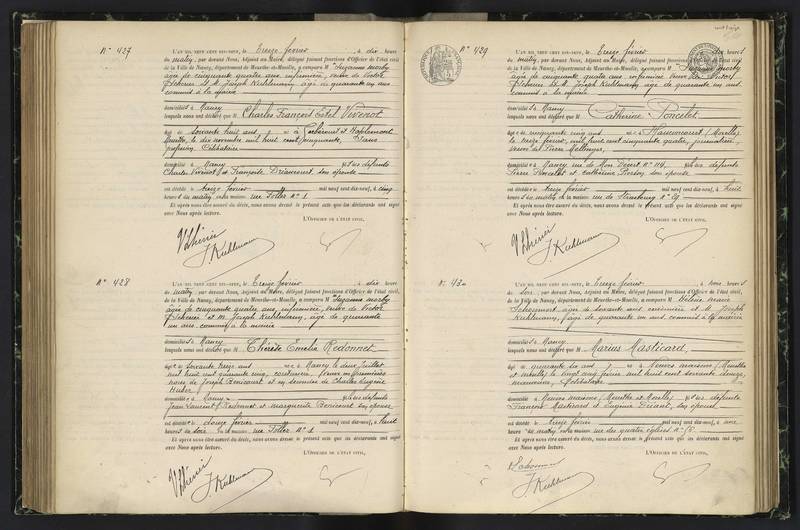 N° 427
L'AN MIL NEUF CENT DIX-SEPT, le treize février, à dix heures
du matin, par devant Nous, Adjoint au Maire, délégué faisant fonctions d'Officier de l'état civil
de la Ville de Nancy, département de Meurthe-et-Moselle, a comparu M Suzanne
âgée de cinquante quatre ans, infirmière, veuve de Victor
et M. Joseph Kuhlmann, âgé de quarante un ans
commis à la mairie
domiciliés à Nancy
lesquels nous ont déclaré que M Charles François Estel Vivenot
âgé de soixante huit ans, né à
Moselle, le dix novembre mil huit cent cinquante, sans
profession Célibataire
domicilié à Nancy fils de défunts
Charles Vivenot et Françoise son épouse
est décédé le treize février mil neuf cent dix-sept, à cinq
heures du matin, en la maison rue Foller n° 1
Et après nous être assuré du décès, nous avons dressé le présent acte que les déclarants ont signé
avec Nous après lecture.
L'OFFICIER DE L'ÉTAT CIVIL,
J. Kuhlmann
N° 428
L'AN MIL NEUF CENT DIX-SEPT, le treize février, à dix heures
du matin, par devant Nous, Adjoint au Maire, délégué faisant fonctions d'Officier de l'état civil,
de la Ville de Nancy, département de Meurthe-et-Moselle, a comparu M Suzanne
âgée de cinquante quatre ans, infirmière, veuve de Victor
et M. Joseph Kuhlmann, âgé de quarante
un ans, commis à la mairie
domiciliés à Nancy
lesquels nous ont déclaré que M Thérèse Emélie Redonnet
âgée de soixante treize ans, née à Nancy le deux juillet
mil huit cent quarante cinq, couturière, veuve en premières
noces de Joseph et en secondes de Charles Eugène
domiciliée à Nancy fille de défunts
Jean Laurent Redonnet et Marguerite son épouse
est décédée le douze février mil neuf cent dix-sept, à huit
heures du soir, en la maison rue Foller n° 1
Et après nous être assuré du décès, nous avons dressé le présent acte que les déclarants ont signé
avec Nous après lecture.
L'OFFICIER DE L'ÉTAT CIVIL,
J. Kuhlmann
N° 429
L'AN MIL NEUF CENT DIX-SEPT, le treize février, à dix heures
du matin, par devant Nous, Adjoint au Maire, délégué faisant fonctions d'Officier de l'état civil
de la Ville de Nancy, département de Meurthe-et-Moselle, a comparu M Suzanne
âgée de cinquante quatre ans, infirmière, veuve de Victor
et M. Joseph Kuhlmann, âgé de quarante un ans
commis à la mairie
domiciliés à Nancy
lesquels nous ont déclaré que M Catherine Poncelet
âgée de cinquante cinq ans, née à (Moselle)
le treize février mil huit cent cinquante quatre, journalière,
veuve de Pierre
domiciliée à Nancy rue de Mon Désert n° 114, fille de défunts
Pierre Poncelet et Catherine son épouse
est décédée le treize février mil neuf cent dix-sept, à huit
heures du matin, en la maison rue de Strasbourg n° 29
Et après nous être assuré du décès, nous avons dressé le présent acte que les déclarants ont signé
avec Nous après lecture.
L'OFFICIER DE L'ÉTAT CIVIL,
J. Kuhlmann
N° 430
L'AN MIL NEUF CENT DIX-SEPT, le treize février, à heures
du soir, par devant Nous, Adjoint au Maire, délégué faisant fonctions d'Officier de l'état civil,
de la Ville de Nancy, département de Meurthe-et-Moselle, a comparu M Hélène Marie
âgée de soixante ans et M. Joseph
Kuhlmann, âgé de quarante un ans, commis à la mairie
domiciliés à Nancy
lesquels nous ont déclaré que M Marius Masticard
âgé de quarante six ans, né à Neuves maisons (Meurthe
et Moselle) le vingt février mil huit cent soixante
célibataire
domicilié à Neuves maisons (Meurthe et Moselle) fils de défunts
François Masticard et Eugénie son épouse
est décédé le treize février mil neuf cent dix-sept, à une
heure du matin, en la maison rue des quatre églises n° 15
Et après nous être assuré du décès, nous avons dressé le présent acte que les déclarants ont signé
avec Nous après lecture.
L'OFFICIER DE L'ÉTAT CIVIL,
J. Kuhlmann